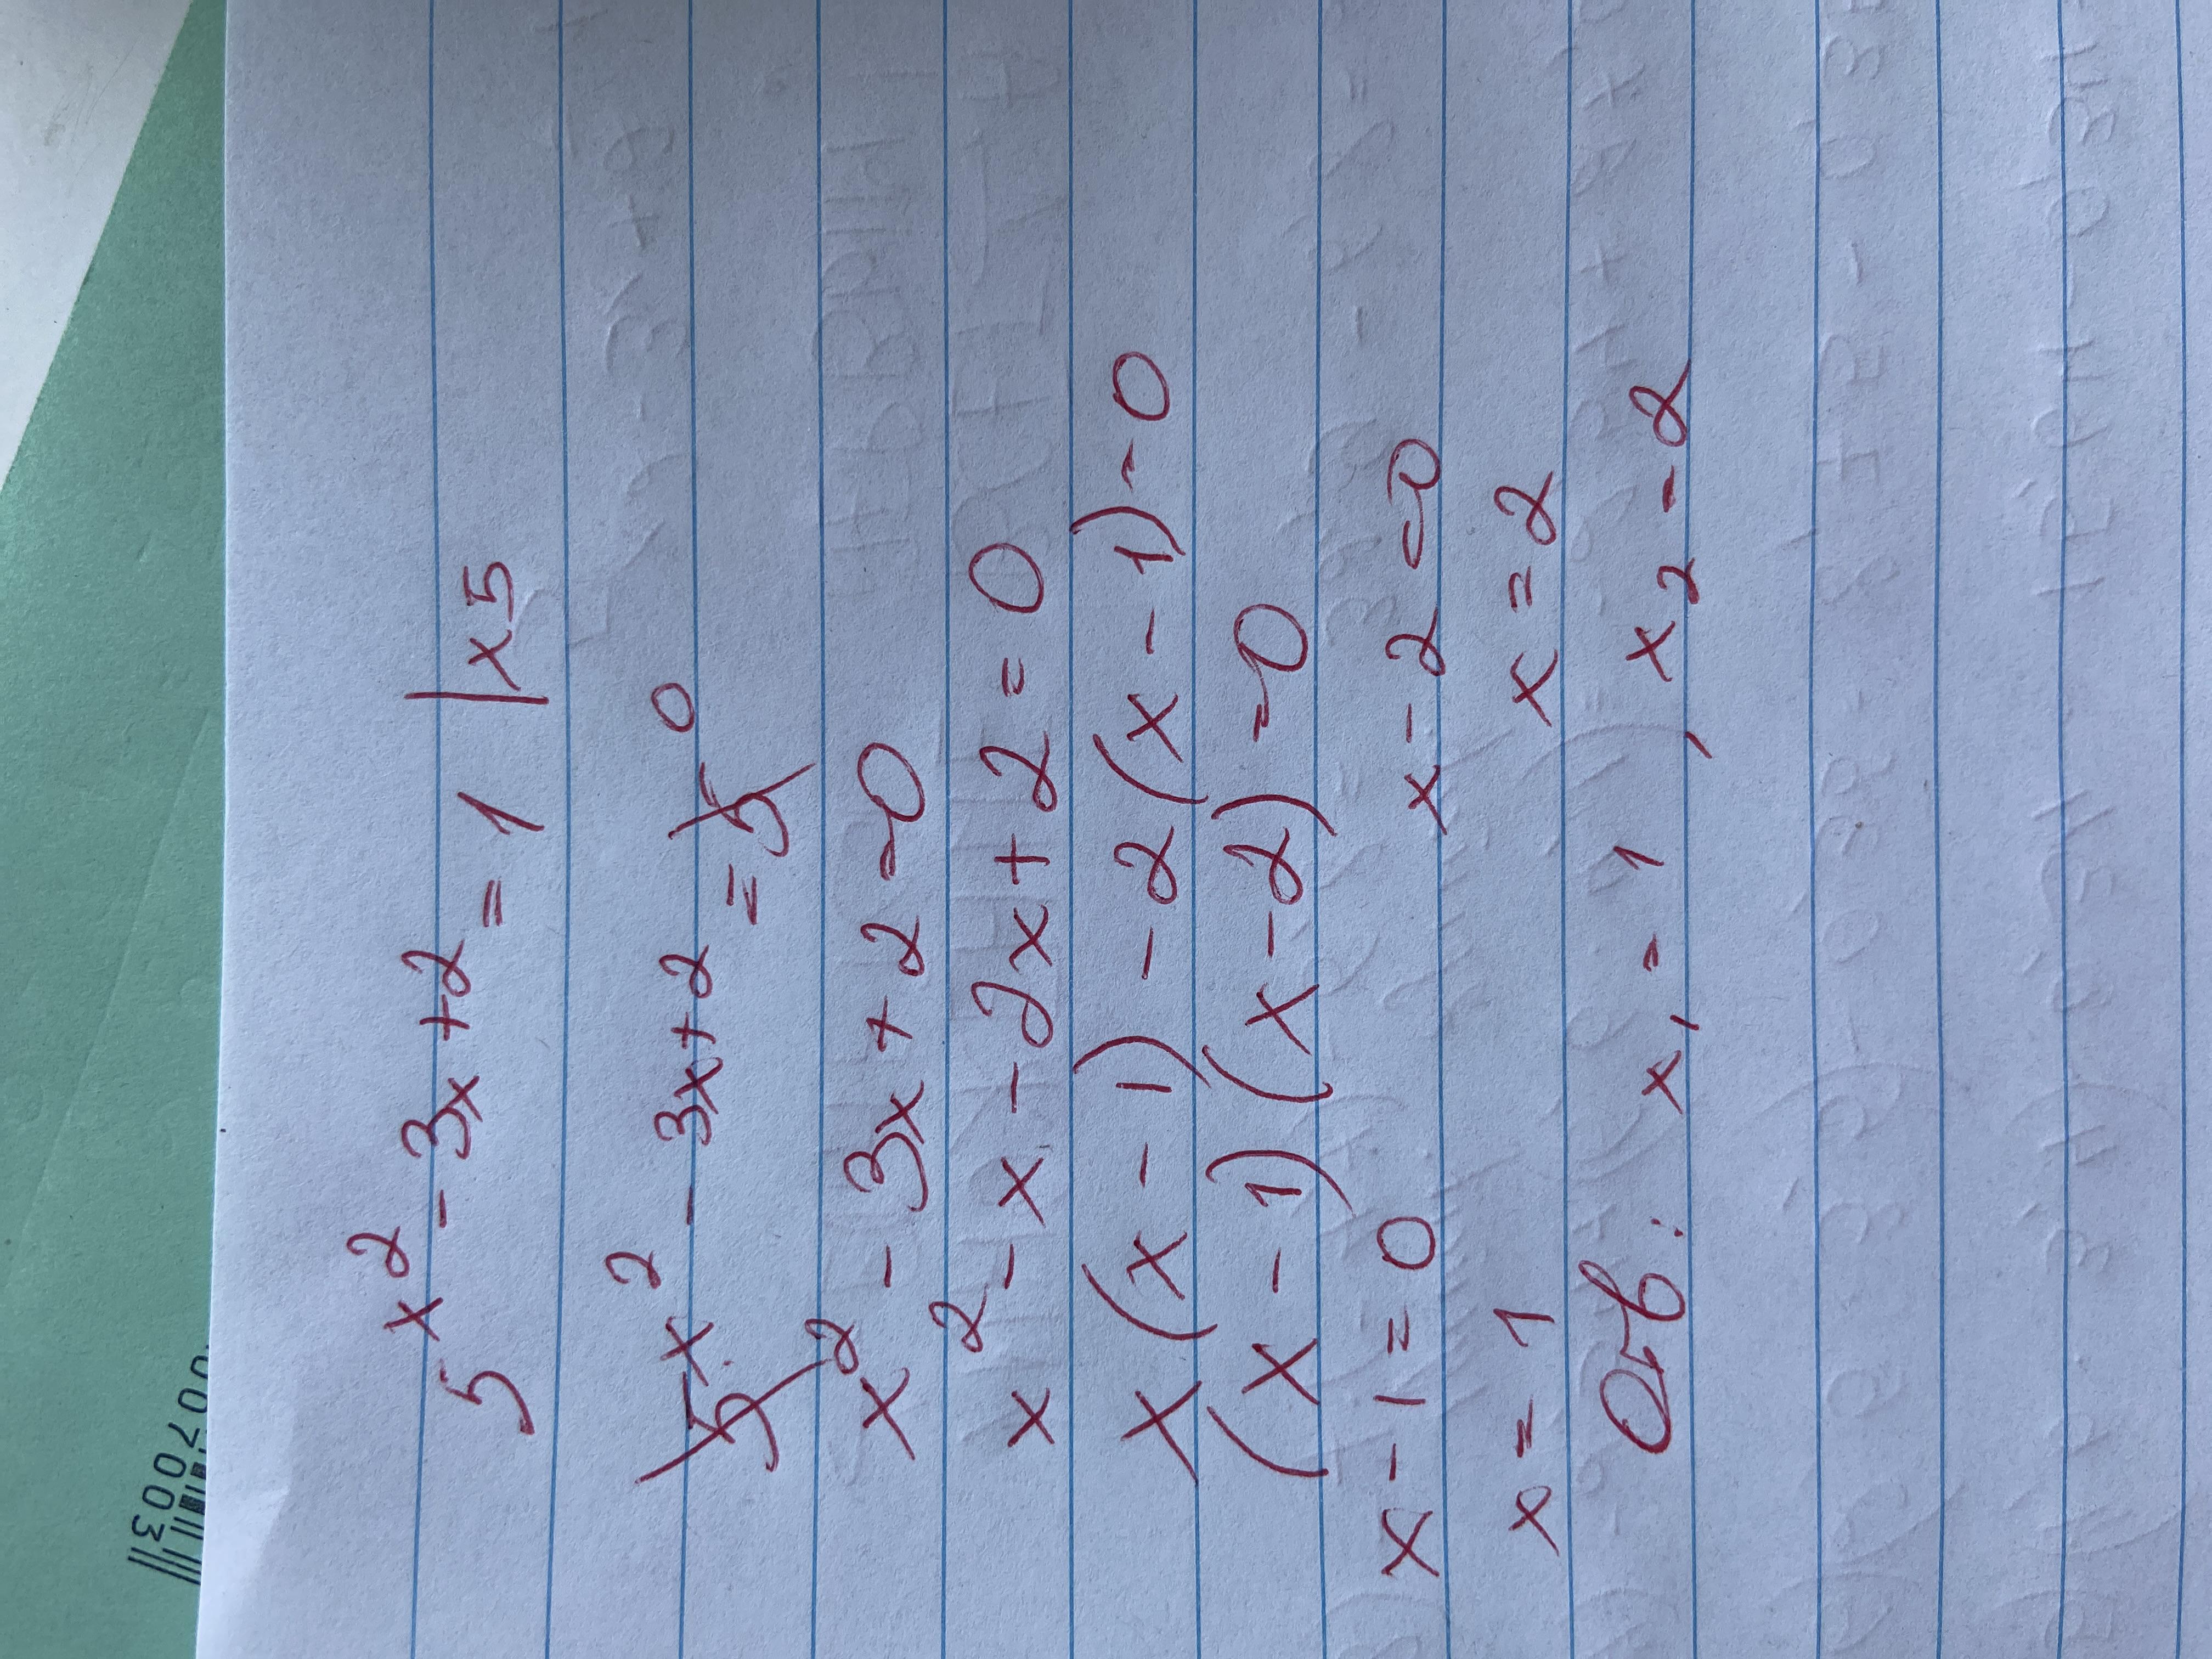 5^x²-3x+2 = 1 | x5
5^x²-3x+2 = 5^0
x² - 3x + 2 = 0
x² - x - 2x + 2 = 0
x(x - 1) - 2(x - 1) = 0
(x - 1)(x - 2) = 0
x - 1 = 0 x - 2 = 0
x = 1 x = 2
Отв: x₁ = 1, x₂ = 2
007003